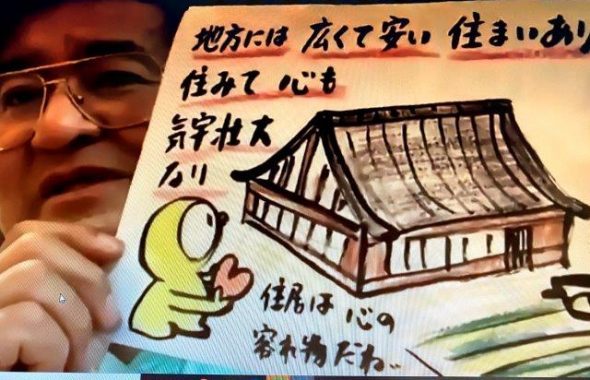 地方には 広くて安い 住まいあり
住みて 心も
気宇壮大
なり
住居は 心の
容れ物だね…